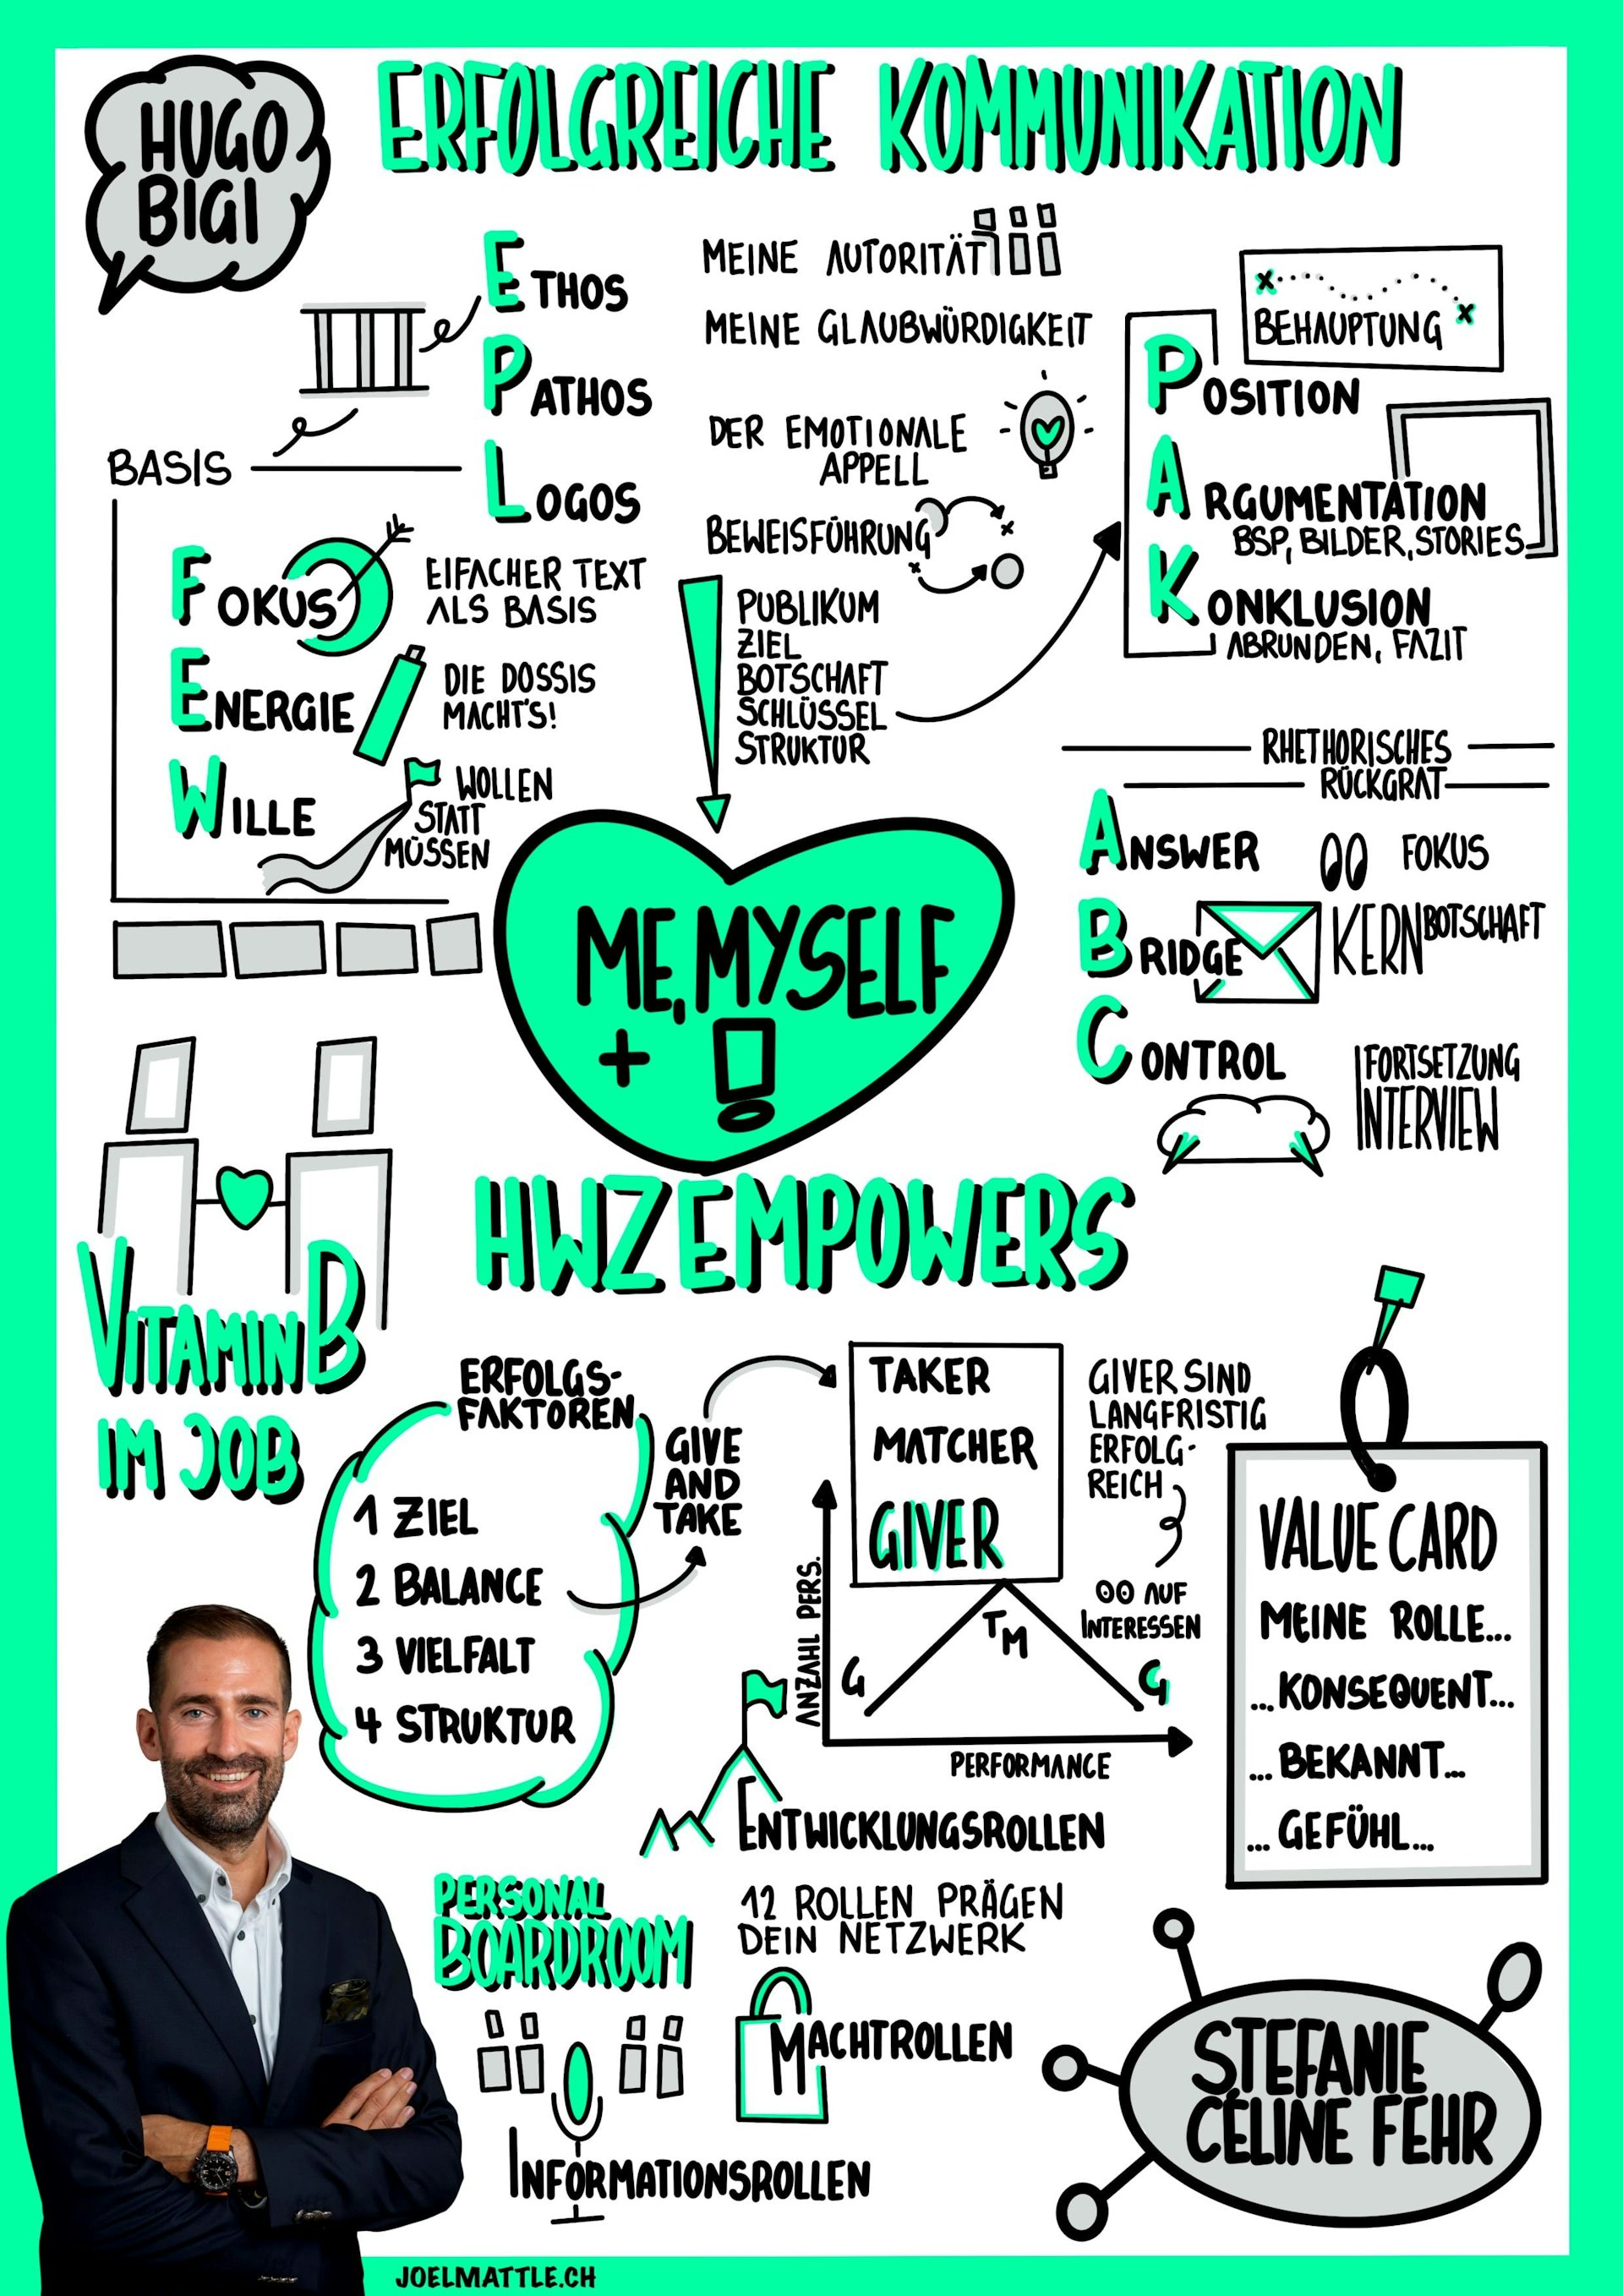 HUGO
BIGI
ERFOLGREICHE KOMMUNIKATION
ETHOS
MEINE AUTORITÄT
MEINE GLAUBWÜRDIGKEIT
PATHOS
DER EMOTIONALE
APPELL
LOGOS
BEWEISFÜHRUNG
BASIS
FOKUS
EIFACHER TEXT
ALS BASIS
ENERGIE
DIE DOSSIS
MACHT'S!
WILLE
WOLLEN
STATT
MÜSSEN
PUBLIKUM
ZIEL
BOTSCHAFT
SCHLÜSSEL
STRUKTUR
BEHAUPTUNG
POSITION
ARGUMENTATION
BSP, BILDER, STORIES
KONKLUSION
ABRUNDEN, FAZIT
RHETHORISCHES
RÜCKGRAT
ANSWER
FOKUS
BRIDGE
KERNBOTSCHAFT
CONTROL
FORTSETZUNG
INTERVIEW
ME, MYSELF
+ !
HWZ EMPOWERS
VITAMIN B
IM JOB
ERFOLGS-
FAKTOREN
1 ZIEL
2 BALANCE
3 VIELFALT
4 STRUKTUR
GIVE
AND
TAKE
TAKER
MATCHER
GIVER
GIVER SIND
LANGFRISTIG
ERFOLG-
REICH
AUF
INTERESSEN
ANZAHL PERS.
G
T
M
G
PERFORMANCE
VALUE CARD
MEINE ROLLE...
... KONSEQUENT...
... BEKANNT...
... GEFÜHL...
ENTWICKLUNGSROLLEN
PERSONAL
BOARDROOM
12 ROLLEN PRÄGEN
DEIN NETZWERK
MACHTROLLEN
INFORMATIONSROLLEN
STEFANIE
CÉLINE FEHR
JOELMATTLE.CH